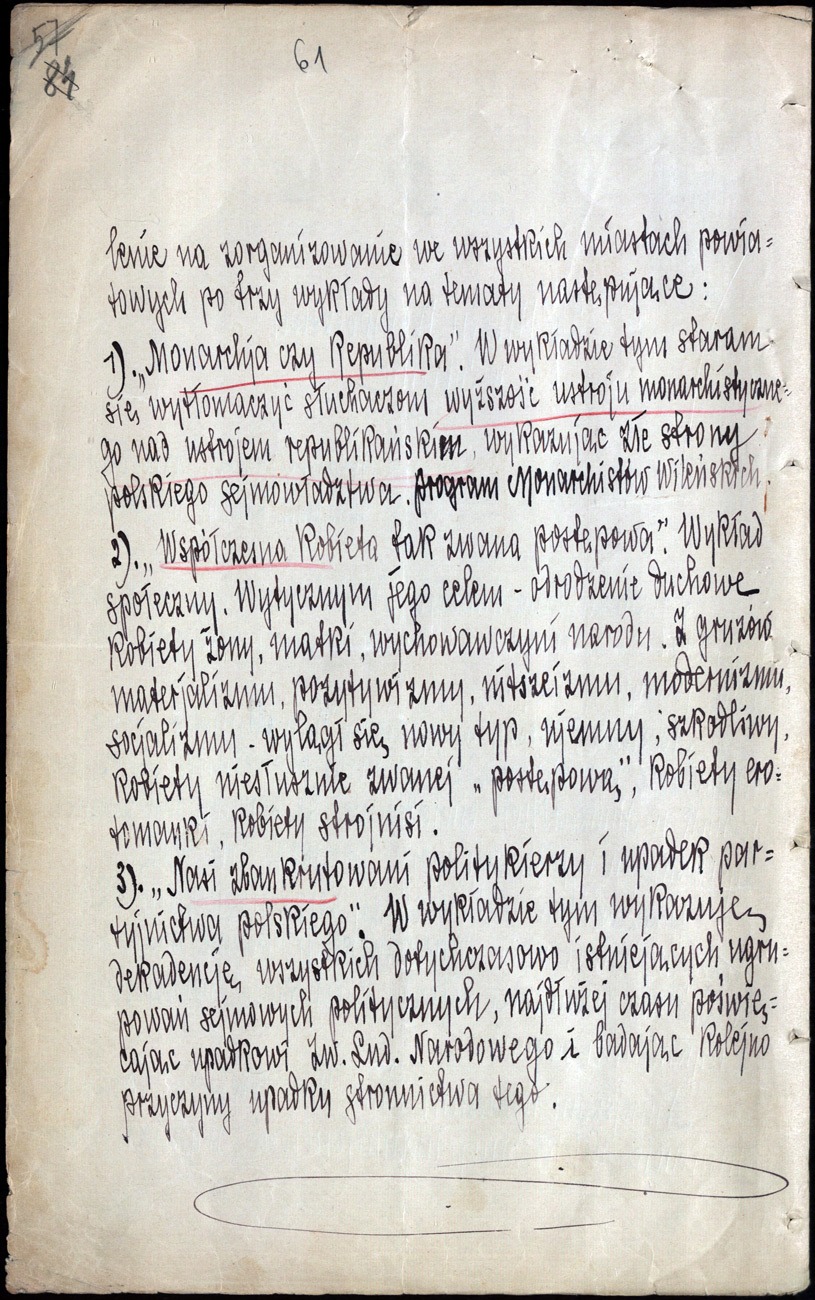 57
84
61
lenie na zorganizowanie we wszystkich miastach powia=
towych po trzy wykłady na tematy następujące:
1). „Monarchja czy Republika". W wykładzie tym staram
się wytłomaczyć słuchaczom wyższość ustroju monarchistyczne=
go nad ustrojem republikańskiem, wykazując złe strony
polskiego sejmowładztwa. Program Monarchistów Wileńskich.
2). „Współczesna Kobieta tak zwana postępowa". Wykład
społeczny. Wytycznym jego celem - odrodzenie duchowe
Kobiety żony, matki, wychowawczyni narodu. Z gruzów
materjalizmu, pozytywizmu, nitszeizmu, modernizmu,
socjalizmu - wylągł się nowy typ, ujemny, szkodliwy,
Kobiety niesłusznie zwanej „postępową", Kobiety ero=
tomanki, Kobiety strojnisi.
3). „Nasi zbankrutowani politykierzy i upadek par=
tyjnictwa polskiego". W wykładzie tym wykazuję
dekadencję wszystkich dotychczasowo istniejących ugru=
powań sejmowych politycznych, najdłużej czasu poświę=
cając upadkowi Zw. Lud. Narodowego i badając Kolejno
przyczyny upadku stronnictwa tego.